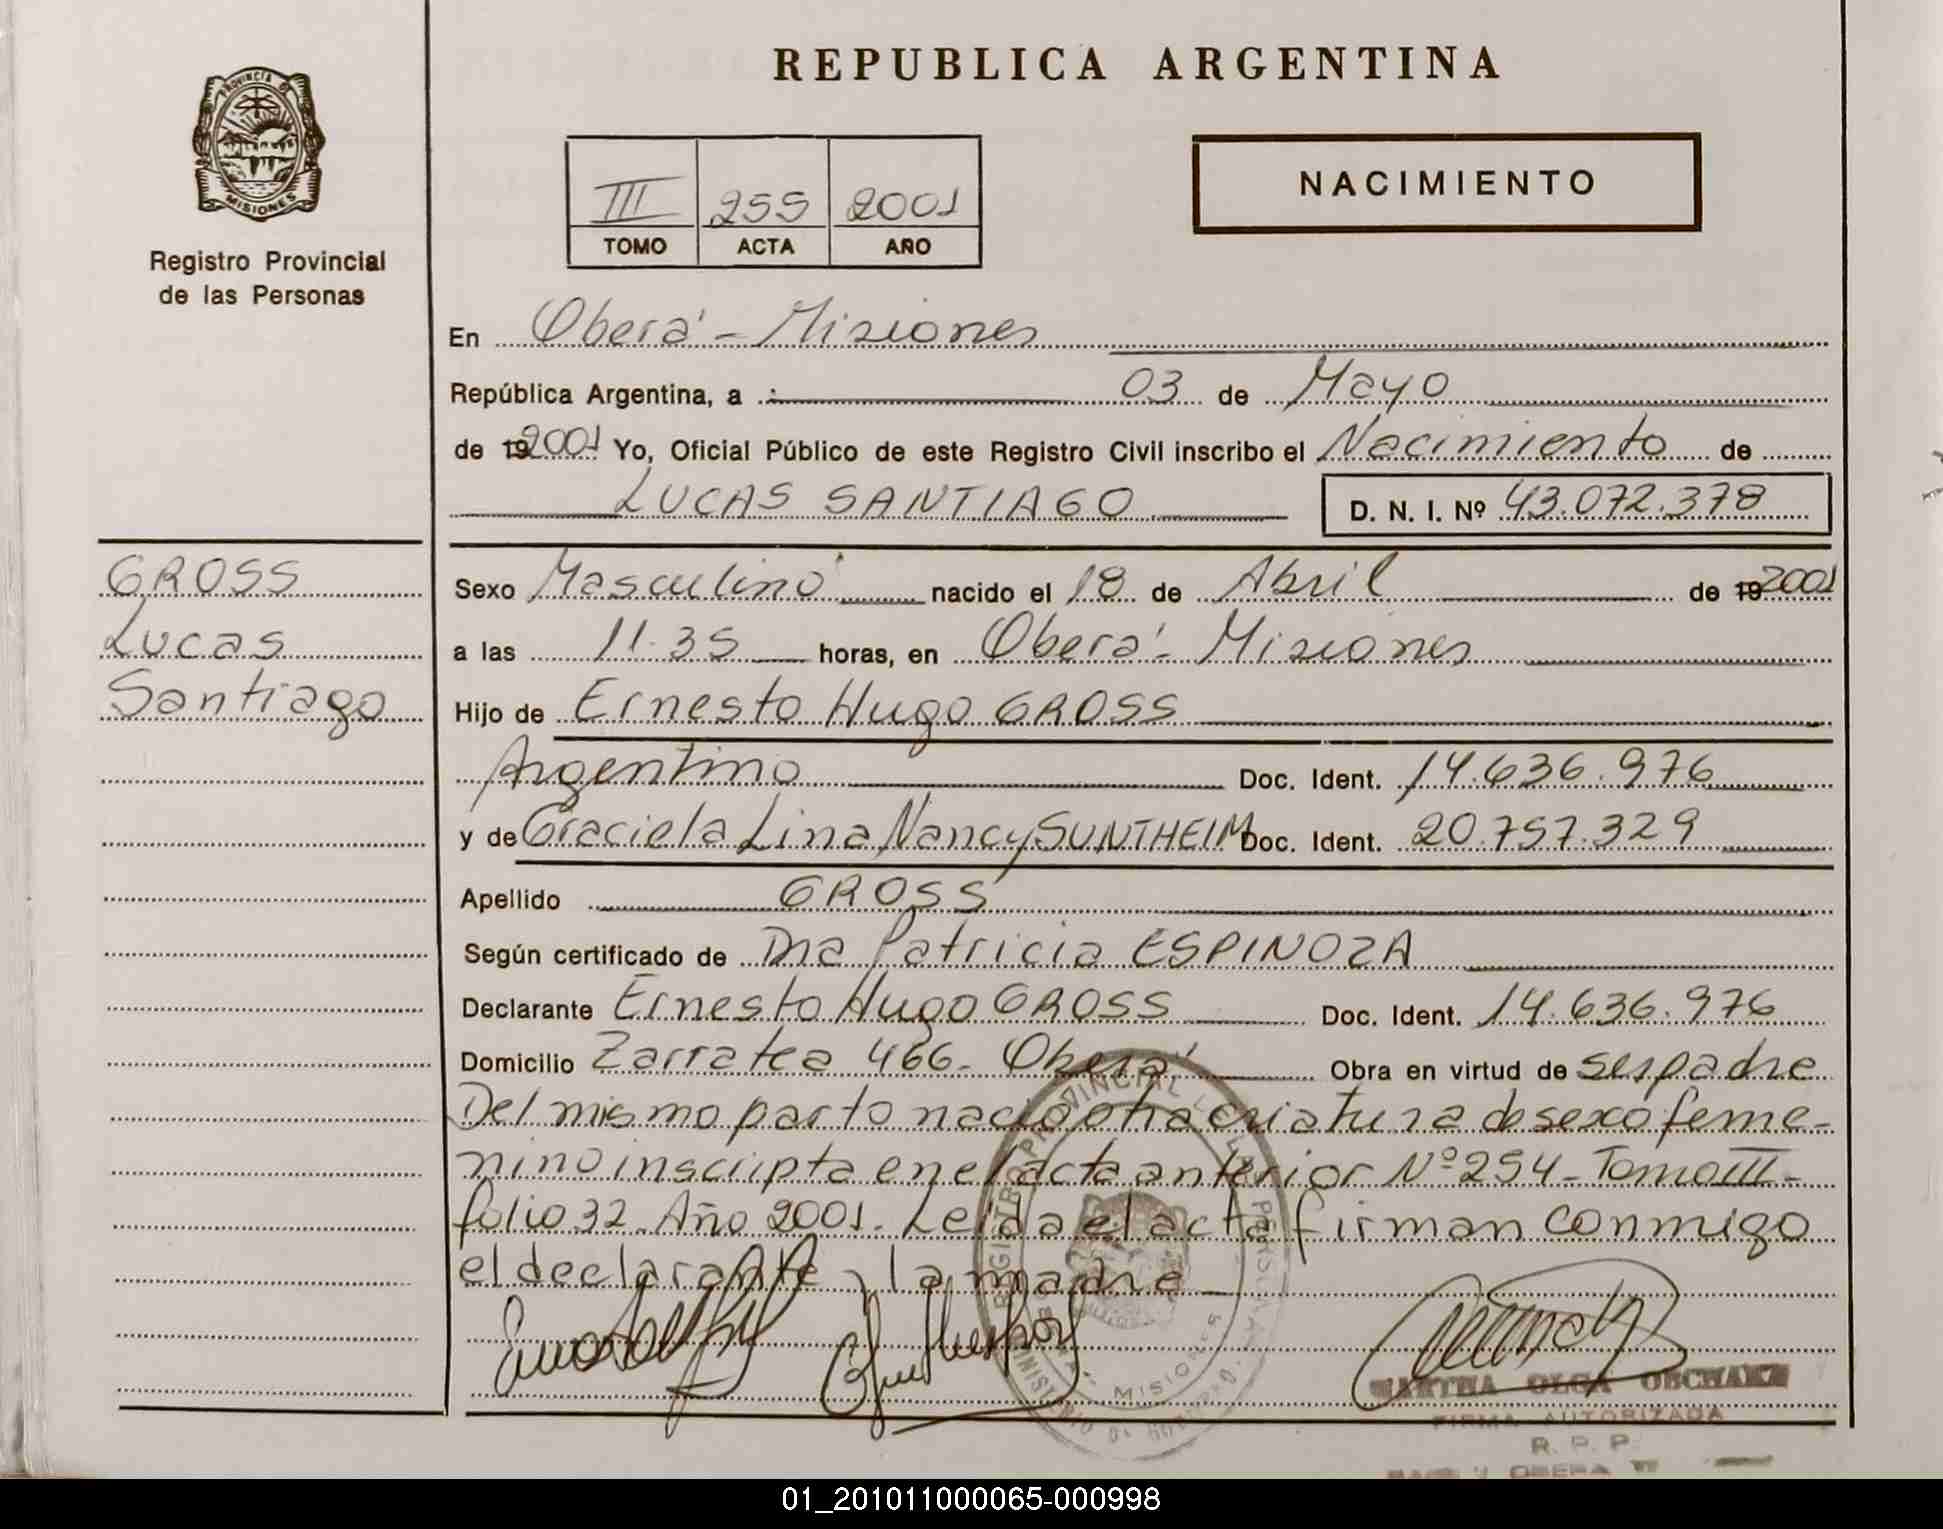 REPUBLICA ARGENTINA
PROVINCIA DE
MISIONES
Registro Provincial
de las Personas
NACIMIENTO
III 255 2001
TOMO ACTA AÑO
En Oberá - Misiones
República Argentina, a 03 de Mayo
de 19 2001 Yo, Oficial Público de este Registro Civil inscribo el Nacimiento de
LUCAS SANTIAGO D. N. I. Nº 43.072.378
GROSS
Lucas
Santiago
Sexo Masculino nacido el 18 de Abril de 19 2001
a las 11.35 horas, en Oberá - Misiones
Hijo de Ernesto Hugo GROSS
Argentino Doc. Ident. 14.636.976
y de Graciela Lina Nancy SUNTHEIM Doc. Ident. 20.757.329
Apellido GROSS
Según certificado de Dra Patricia ESPINOZA
Declarante Ernesto Hugo GROSS Doc. Ident. 14.636.976
Domicilio Zarratea 466 - Oberá Obra en virtud de ser padre
Del mismo parto nacio otra criatura de sexo feme-
nino inscripta en el acta anterior Nº 254 - Tomo III -
folio 32 - Año 2001. Leida el acta firman conmigo
el declarante y la madre
REGISTRO PROVINCIAL DE LAS PERSONAS
MISIONES
MARTHA OLGA
FIRMA AUTORIZADA
R. P. P.
OBERA
01_201011000065-000998